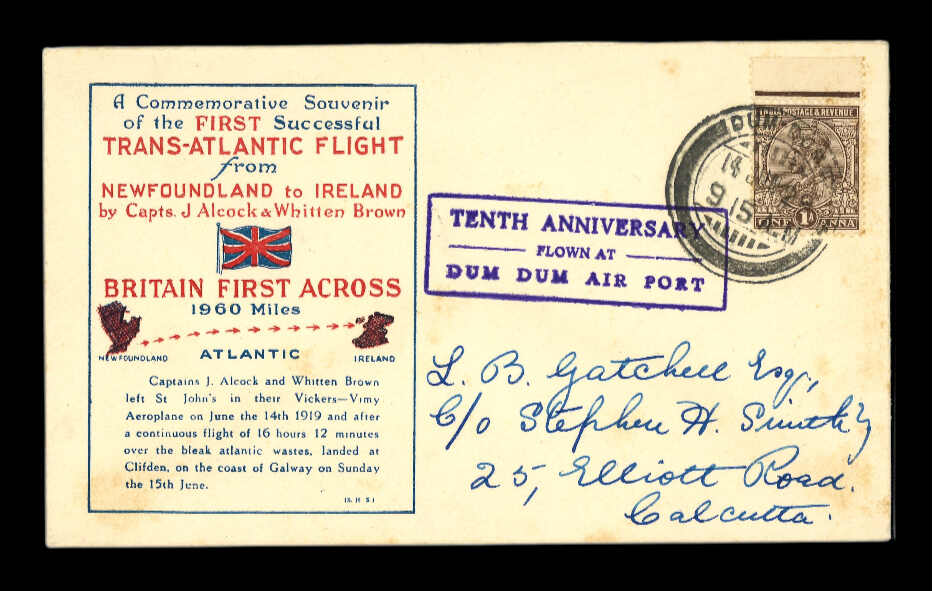 A Commemorative Souvenir
of the FIRST Successful
TRANS-ATLANTIC FLIGHT
from
NEWFOUNDLAND to IRELAND
by Capts. J Alcock & Whitten Brown
BRITAIN FIRST ACROSS
1960 Miles
NEWFOUNDLAND
ATLANTIC
IRELAND
Captains J. Alcock and Whitten Brown
left St John's in their Vickers—Vimy
Aeroplane on June the 14th 1919 and after
a continuous flight of 16 hours 12 minutes
over the bleak atlantic wastes, landed at
Clifden, on the coast of Galway on Sunday
the 15th June.
(S. H S )
TENTH ANNIVERSARY
FLOWN AT
DUM DUM AIR PORT
INDIA POSTAGE & REVENUE
ONE 1A ANNA
DUM
14
9 15 AM
L. B. Gatchell Esq.,
C/o Stephen H. Smith,
25, Elliott Road.
Calcutta.